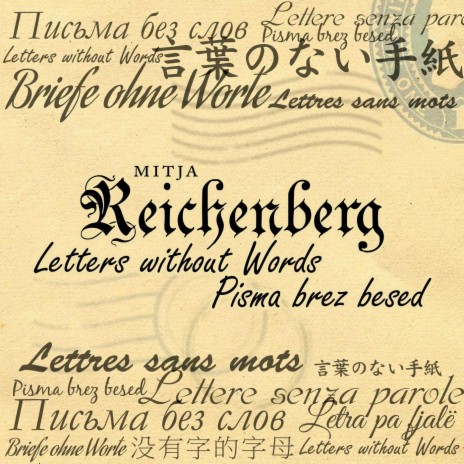 Письма без слов Lettere senza parole
Letters without Words Pisma brez besed
言葉のない手紙
Briefe ohne Worte Lettres sans mots
MITJA
Reichenberg
Letters without Words
Pisma brez besed
Lettres sans mots 言葉のない手紙
Pisma brez besed Lettere senza parole
Письма без слов Letra pa fjalë
Briefe ohne Worte 没有字的字母 Letters without Words